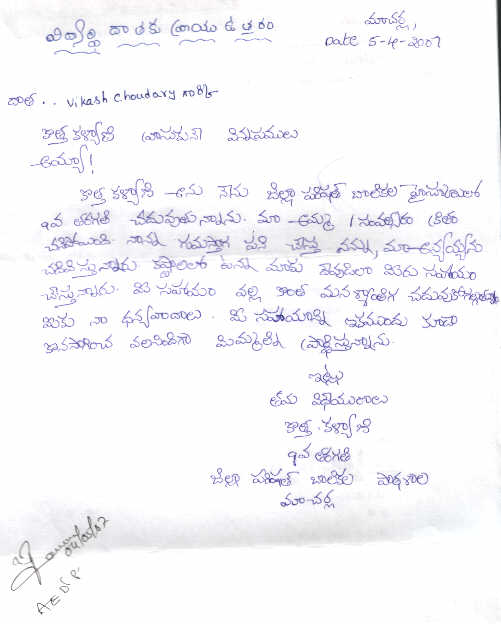 విద్యార్థి దాతకు వ్రాయు ఉత్తరం
మాచర్ల,
Date 5-4-2007
దాత .. Vikash Choudary గారికి
కొత్త కళ్యాణి వ్రాసుకునే విన్నపములు
అయ్యా!
కొత్త కళ్యాణి అను నేను జిల్లా పరిషత్ బాలికల హైస్కూలులో
9వ తరగతి చదువుతున్నాను. మా అమ్మ 1 సంవత్సరం క్రితం
చనిపోయింది. నాన్న గుమస్తాగ పని చేస్తూ నన్ను, మా అన్నయ్యను
చదివిస్తున్నాడు కష్టాలలో ఉన్న మాకు దేవుడిలా మీరు సహాయం
చేస్తున్నారు. మీ సహాయం వల్ల కొంత మనశ్శాంతిగ చదువుకోగల్గుతున్నా
మీకు నా ధన్యవాదాలు. మీ సహాయాన్ని ఇకముందు కూడా
కొనసాగించ వలసిందిగా మిమ్మల్ని ప్రార్థిస్తున్నాను.
ఇట్లు
తమ విధేయురాలు
కొత్త. కళ్యాణి
9వ తరగతి
జిల్లా పరిషత్ బాలికల పాఠశాల
మాచర్ల